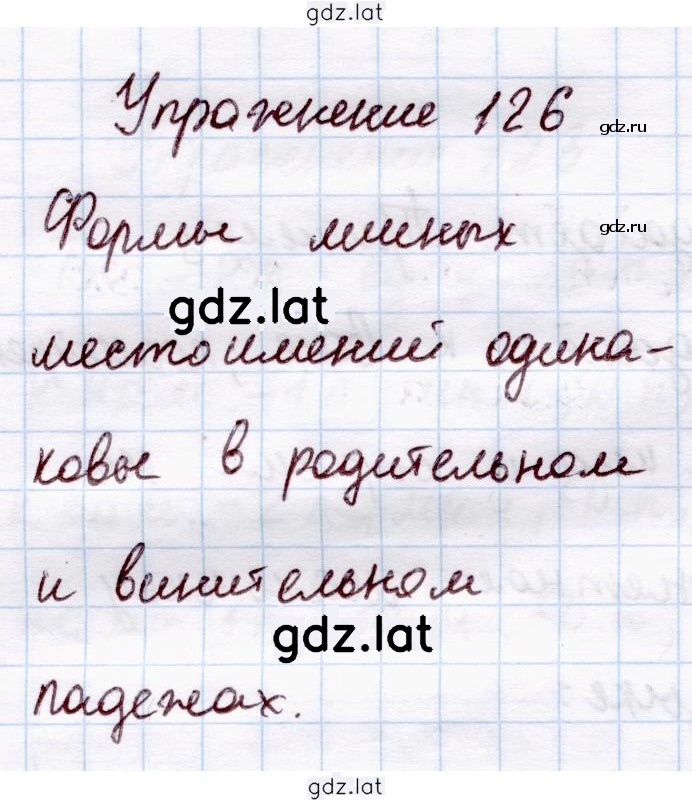 gdz.lat
Упражнение 126
gdz.ru
Формы личных
gdz.ru
gdz.lat
местоимений одина-
ковы в родительном
и винительном
gdz.lat
падежах.
gdz.lat